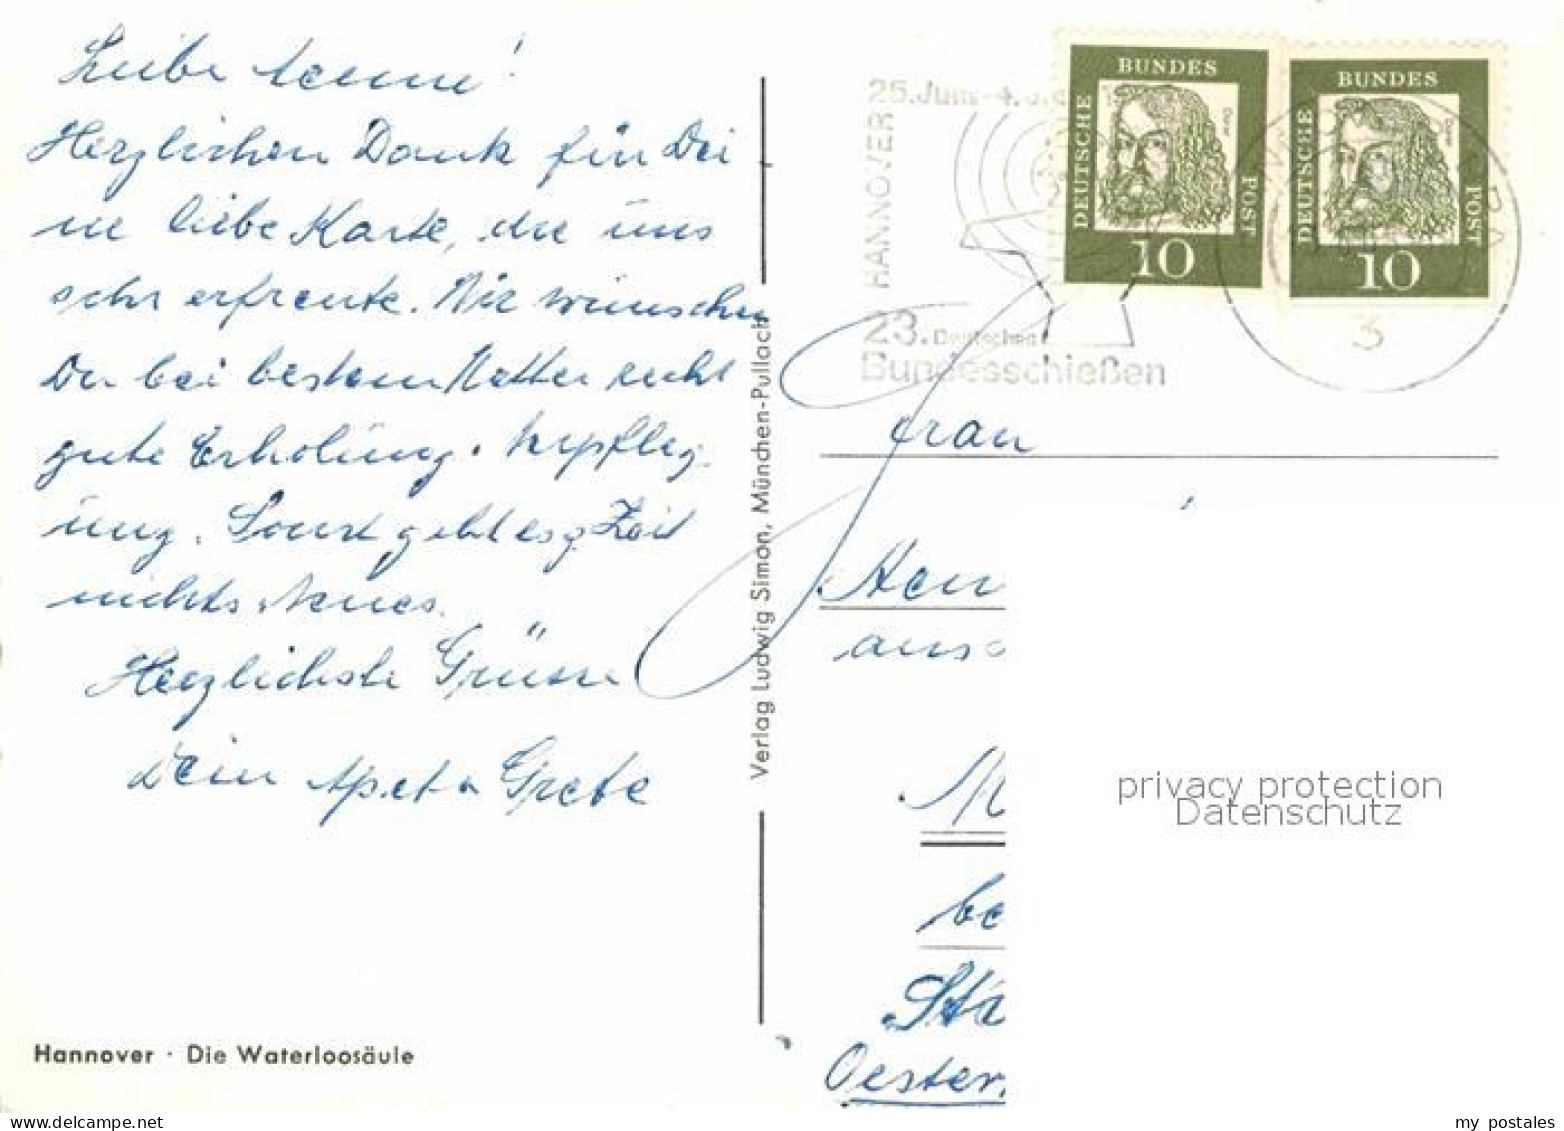 Liebe Aenne!
Herzlichen Dank für Dei
ne liebe Karte, die uns
sehr erfreute. Wir wünschen
Du bei bestem Wetter recht
gute Erholung. Verpfleg
ung. Sonst geht es z. Zeit
nichts Neues.
Herzlichste Grüsse
Dein Grete
Hannover · Die Waterloosäule
Verlag Ludwig Simon, München-Pullach
25. Juni - 4.
HANNOVER
23. Deutsches
Bundesschießen
DEUTSCHE
BUNDES
POST
Dürer
10
DEUTSCHE
BUNDES
POST
Dürer
10
3
Frau
Aen
ans
M
be
Stä
Oester
privacy protection
Datenschutz
www.delcampe.net
my_postales